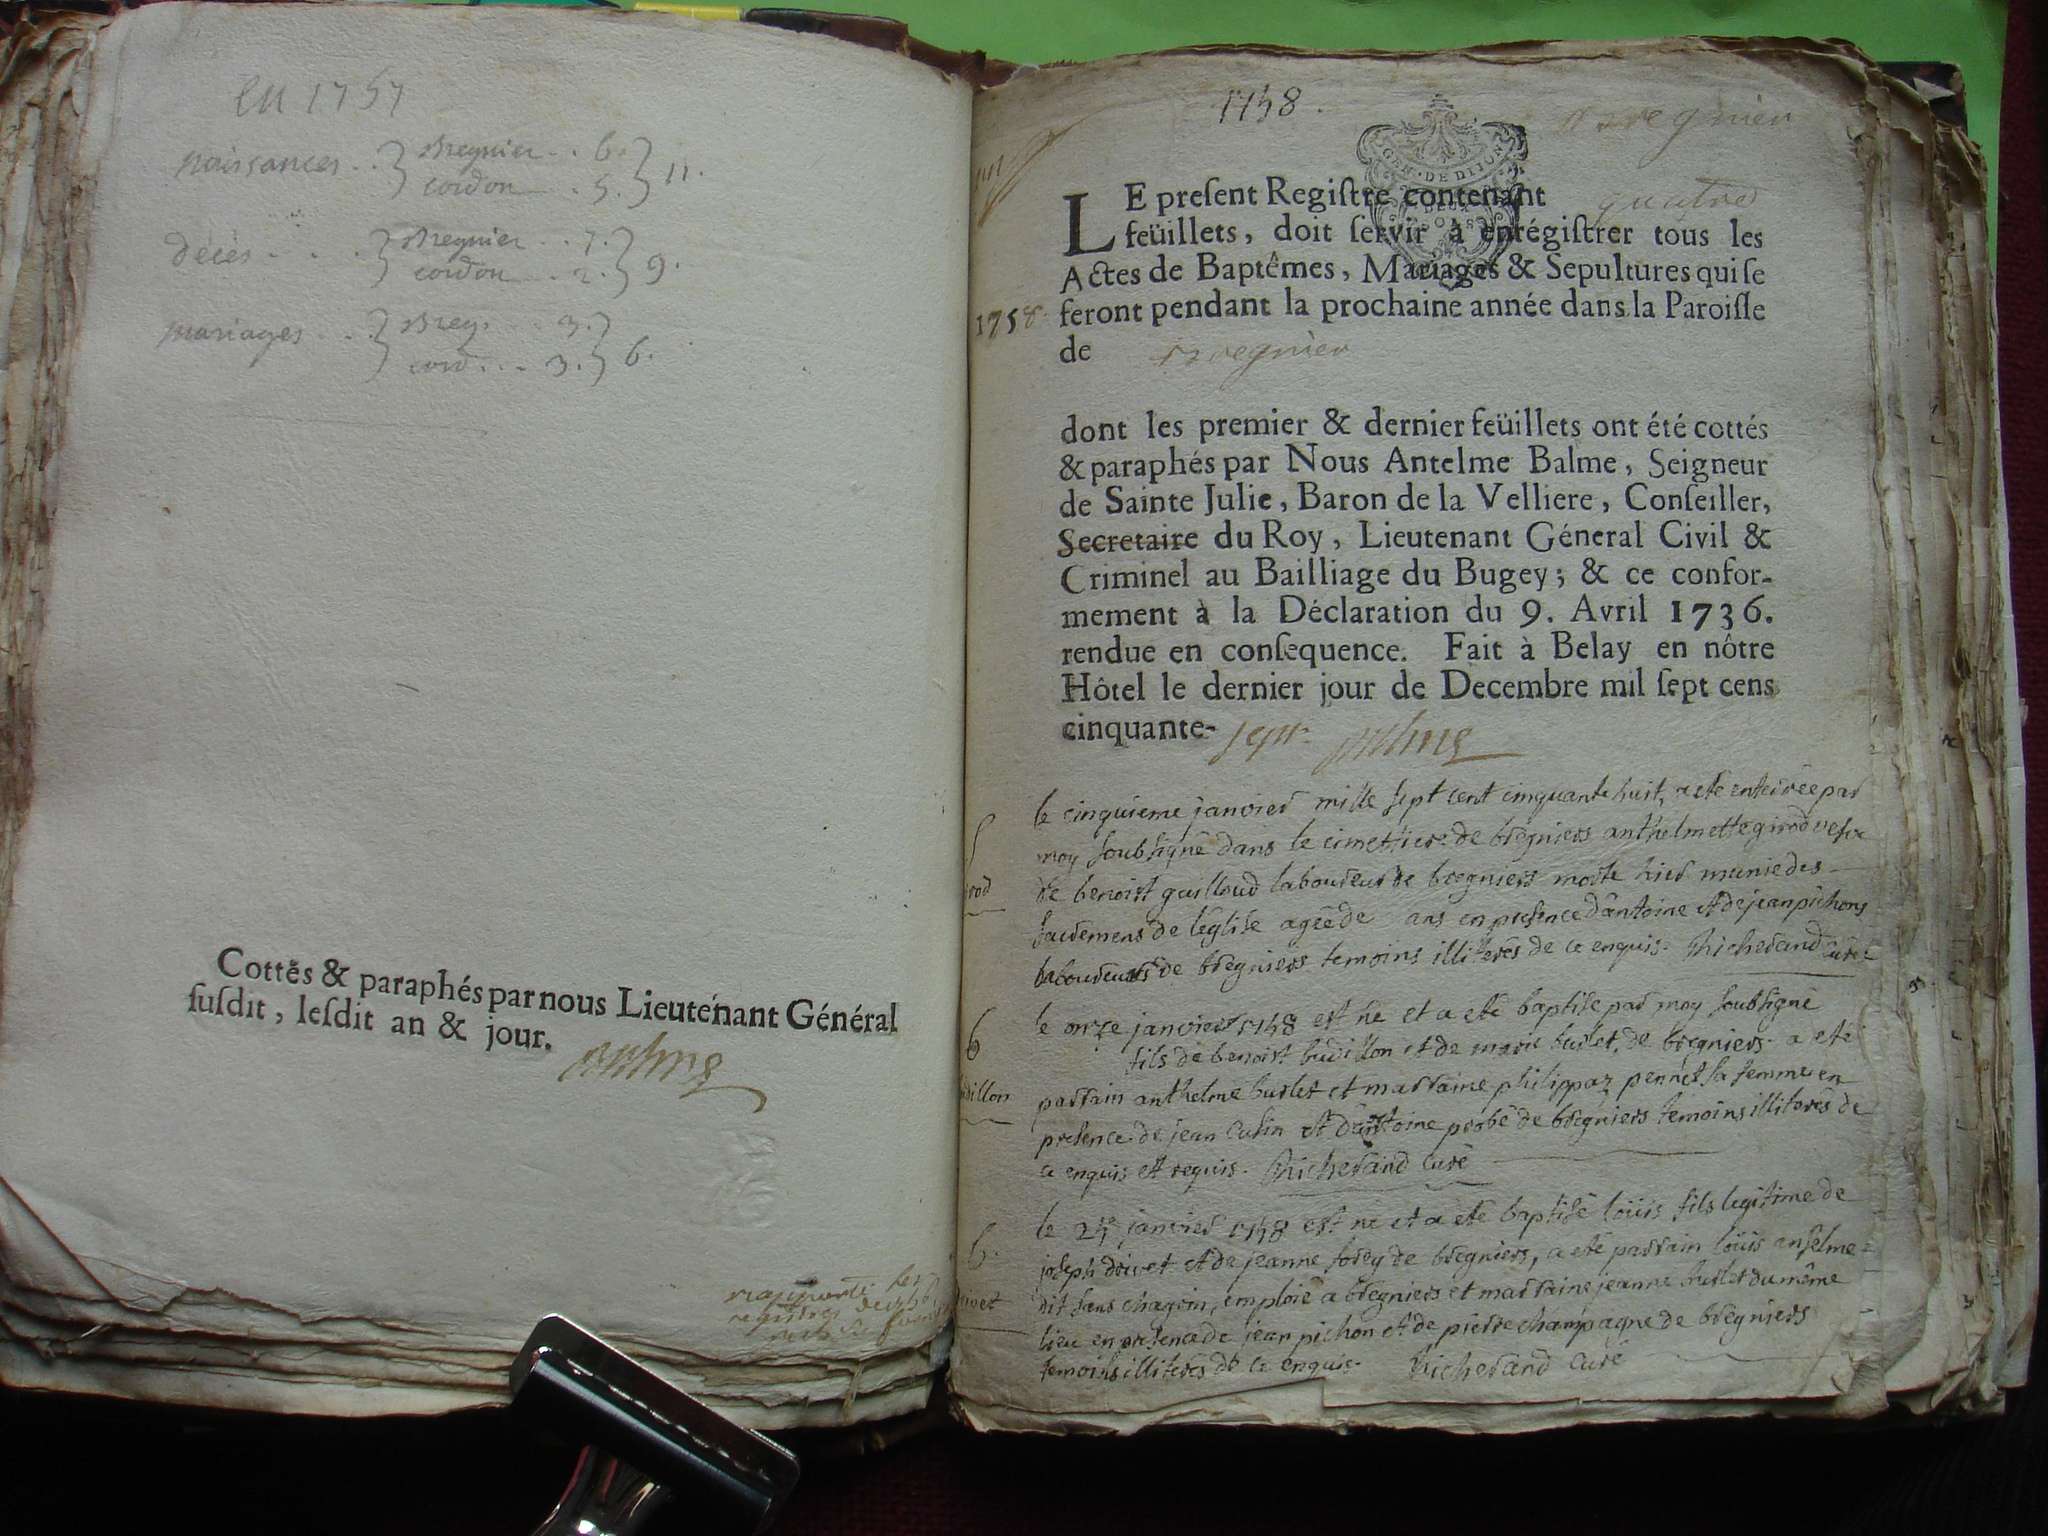 en 1757
naissances .. Bregnier .. 6. 11.
cordon .. 5.
décès .... Bregnier .. 7. 9.
cordon .. 2.
mariages ... Breg. .. 3. 6.
cord ... 3.
Cottés & paraphés par nous Lieutenant Général
ſuſdit, leſdit an & jour.
1758.
Bregnier
GEN. DE DIJON
LE preſent Regiſtre contenant quatre
feüillets, doit ſervir à enrégiſtrer tous les
Actes de Baptêmes, Mariages & Sepultures qui ſe
1758
feront pendant la prochaine année dans la Paroiſſe
de Bregnier
dont les premier & dernier feüillets ont été cottés
& paraphés par Nous Antelme Balme, Seigneur
de Sainte Julie, Baron de la Velliere, Conſeiller,
Secretaire du Roy, Lieutenant Géneral Civil &
Criminel au Bailliage du Bugey; & ce confor-
mement à la Déclaration du 9. Avril 1736.
rendue en conſequence. Fait à Belay en nôtre
Hôtel le dernier jour de Decembre mil ſept cens
cinquante- sept
le cinquieme janvier mille sept cent cinquante huit, a eté enterrée par
moy soubsigné dans le cimettiere de bregniers anthelmette girod vefve
de benoist guilloud laboureur de bregniers morte hier munie des
sacremens de l'église agée de ans en presence d'antoine et de jean pichons
laboureurs de bregniers temoins illiterés de ce enquis. Richerand curé
le onze janvier 1758 est né et a eté baptisé par moy soubsigné
fils de benoist budillon et de marie burlet, de bregniers a eté
parrain anthelme burlet et marraine philippaz pennet sa femme en
presence de jean cusin et d'antoine probé de bregniers temoins illiterés de
ce enquis et requis. Richerand curé
le 25e janvier 1758 est né et a eté baptisé loüis fils legitime de
joseph drivet et de jeanne sorey de bregniers, a eté parrain loüis anselme
dit sans chagrin, emploié a bregniers et marraine jeanne burlet du même
lieu en presence de jean pichon et de pierre champagne de bregniers
temoins illiterés de ce enquis. Richerand curé